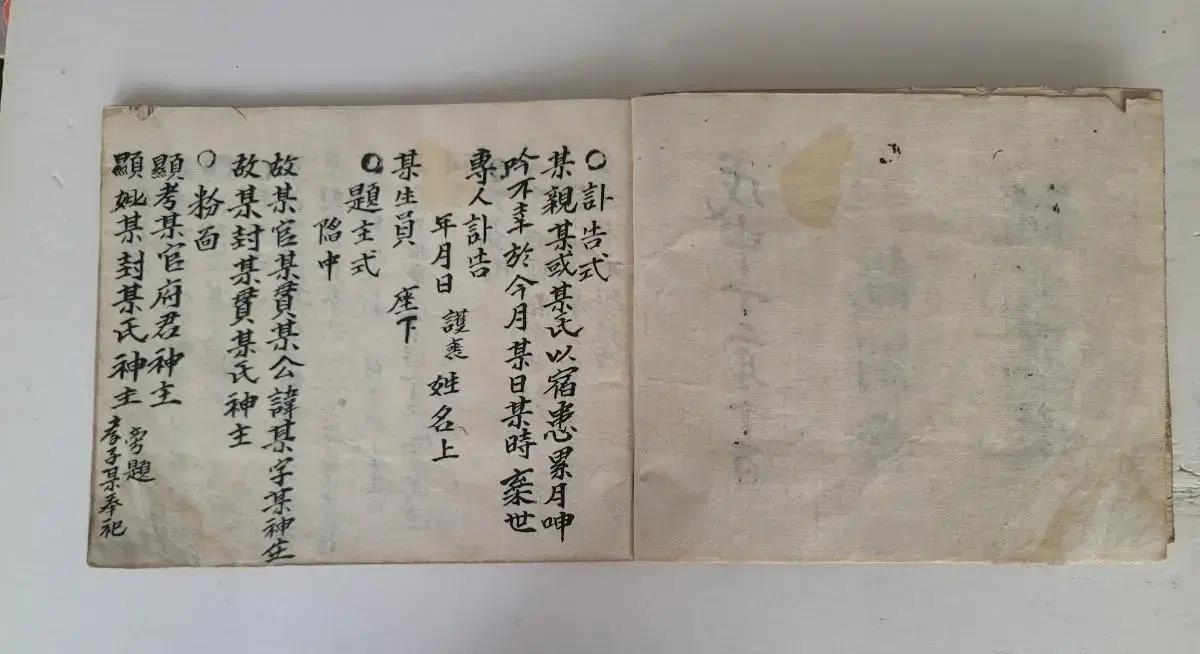 ○訃告式
某親某或某氏以宿患累月呻
吟不幸於今月某日某時棄世
專人訃告
年月日 護喪 姓名上
某生員 座下
○題主式
陷中
故某官某貫某公諱某字某神主
故某封某貫某氏神主
○粉面
顯考某官府君神主
顯妣某封某氏神主
旁題
孝子某奉祀